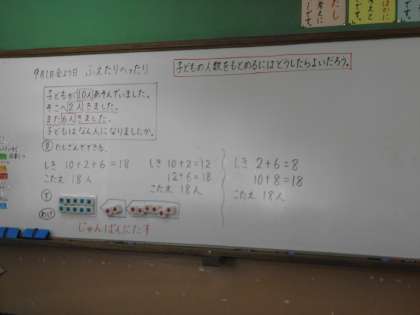 ふえたりへったり
子どもの人数をもとめるにはどうしたらよいだろう。
子どもが10人あそんでいました。
そこへ2人きました。
また6人きました。
子どもはなん人になりましたか。
たしざんでできる。
しき 10+2+6=18
こたえ 18人
しき 10+2=12
12+6=18
こたえ 18人
しき 2+6=8
10+8=18
こたえ 18人
じゅんばんにたす